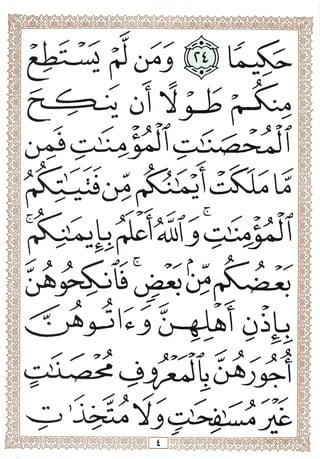 حَكِيمًا ٢٤ وَمَن لَّمْ يَسْتَطِعْ
مِنكُمْ طَوْلًا أَن يَنكِحَ
الْمُحْصَنَٰتِ الْمُؤْمِنَٰتِ فَمِن
مَّا مَلَكَتْ أَيْمَٰنُكُم مِّن فَتَيَٰتِكُمُ
الْمُؤْمِنَٰتِ ۚ وَاللَّهُ أَعْلَمُ بِإِيمَٰنِكُم ۚ
بَعْضُكُم مِّنۢ بَعْضٍ ۚ فَانكِحُوهُنَّ
بِإِذْنِ أَهْلِهِنَّ وَءَاتُوهُنَّ
أُجُورَهُنَّ بِالْمَعْرُوفِ مُحْصَنَٰتٍ
غَيْرَ مُسَٰفِحَٰتٍ وَلَا مُتَّخِذَٰتِ
٤